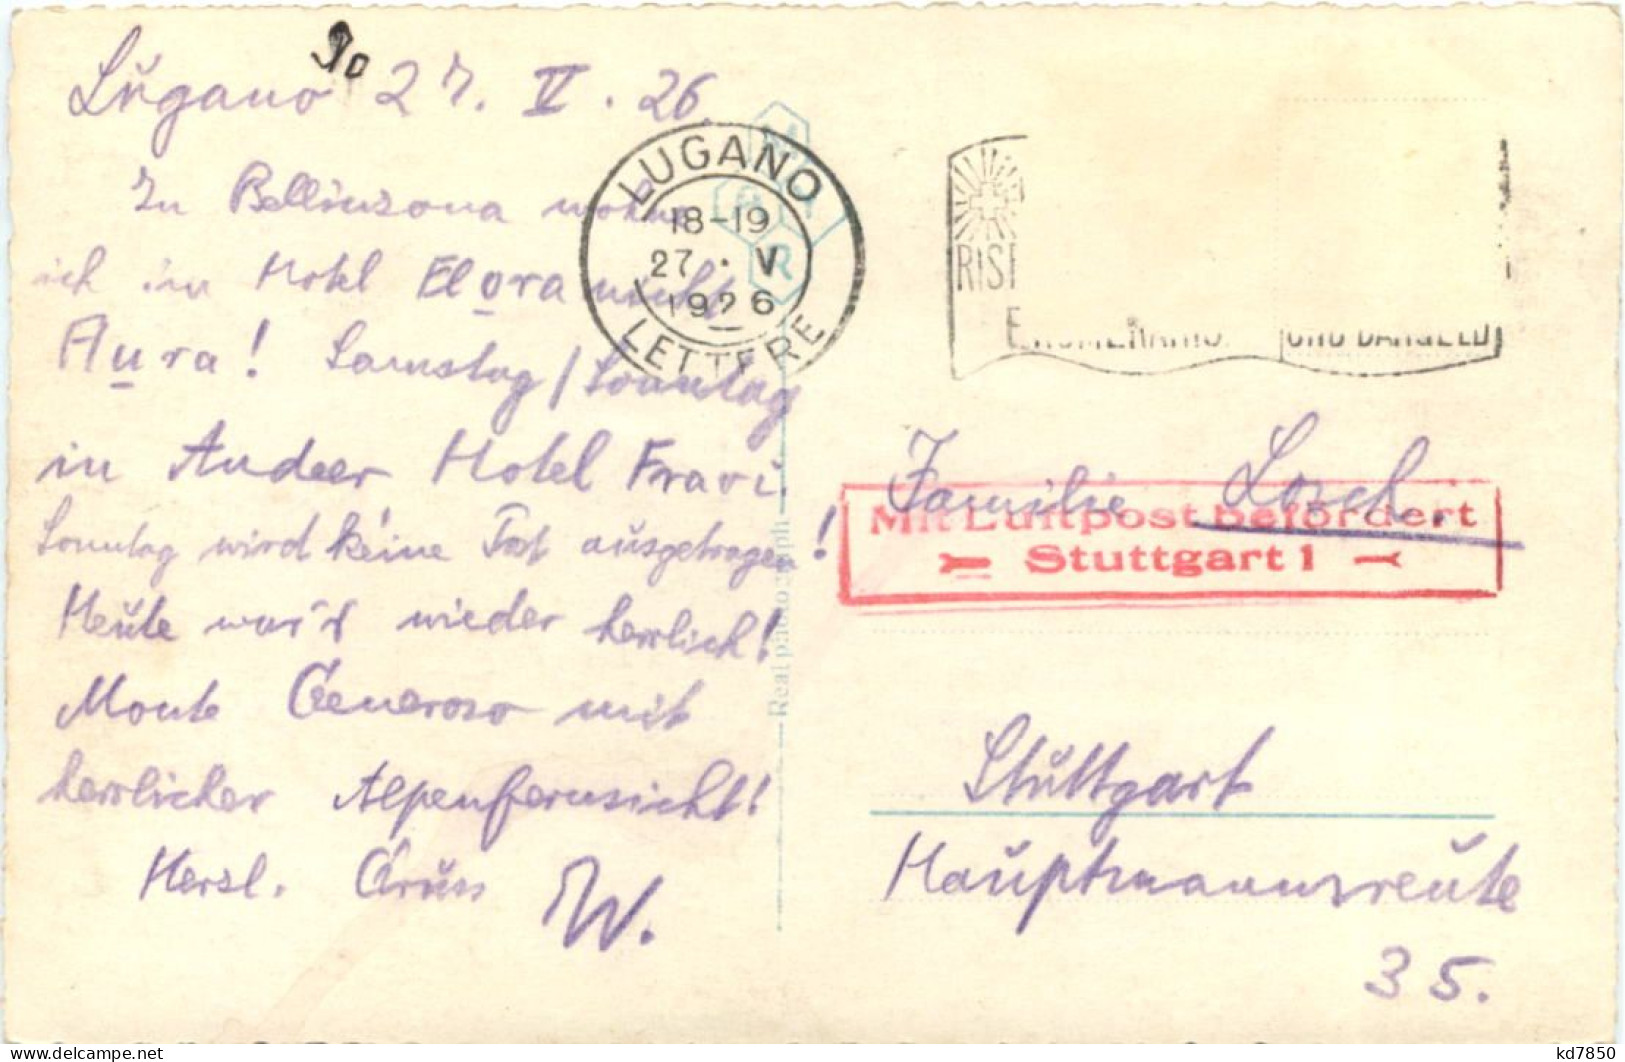 Lugano 27. V. 26.
In Bellinzona wohne
ich im Hotel Flora nicht
Aura! Samstag / Sonntag
in Andeer Hotel Fravi.
Sonntag wird keine Post ausgetragen!
Heute war's wieder herrlich!
Monte Generoso mit
herrlicher Alpenfernsicht!
Herzl. Gruss W.
LUGANO
18-19
27 · V
1926
LETTERE
R
Real photograph
RIS
UND BARGELD
Familie Lorch.
Mit Luftpost befördert
Stuttgart 1
Stuttgart
Hauptmannsreute
35.
delcampe.net
kd7850